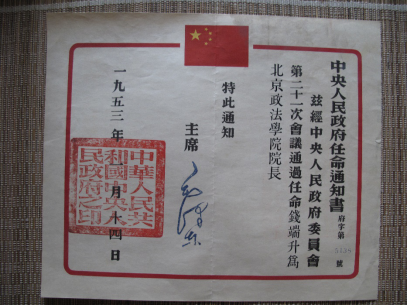 中央人民政府任命通知書 府字第 號
茲經中央人民政府委員會
第二十一次會議通過任命錢端升為
北京政法學院院長
特此通知
主席 毛澤東
一九五三年 月十四日
中華人民共
和國中央人
民政府之印